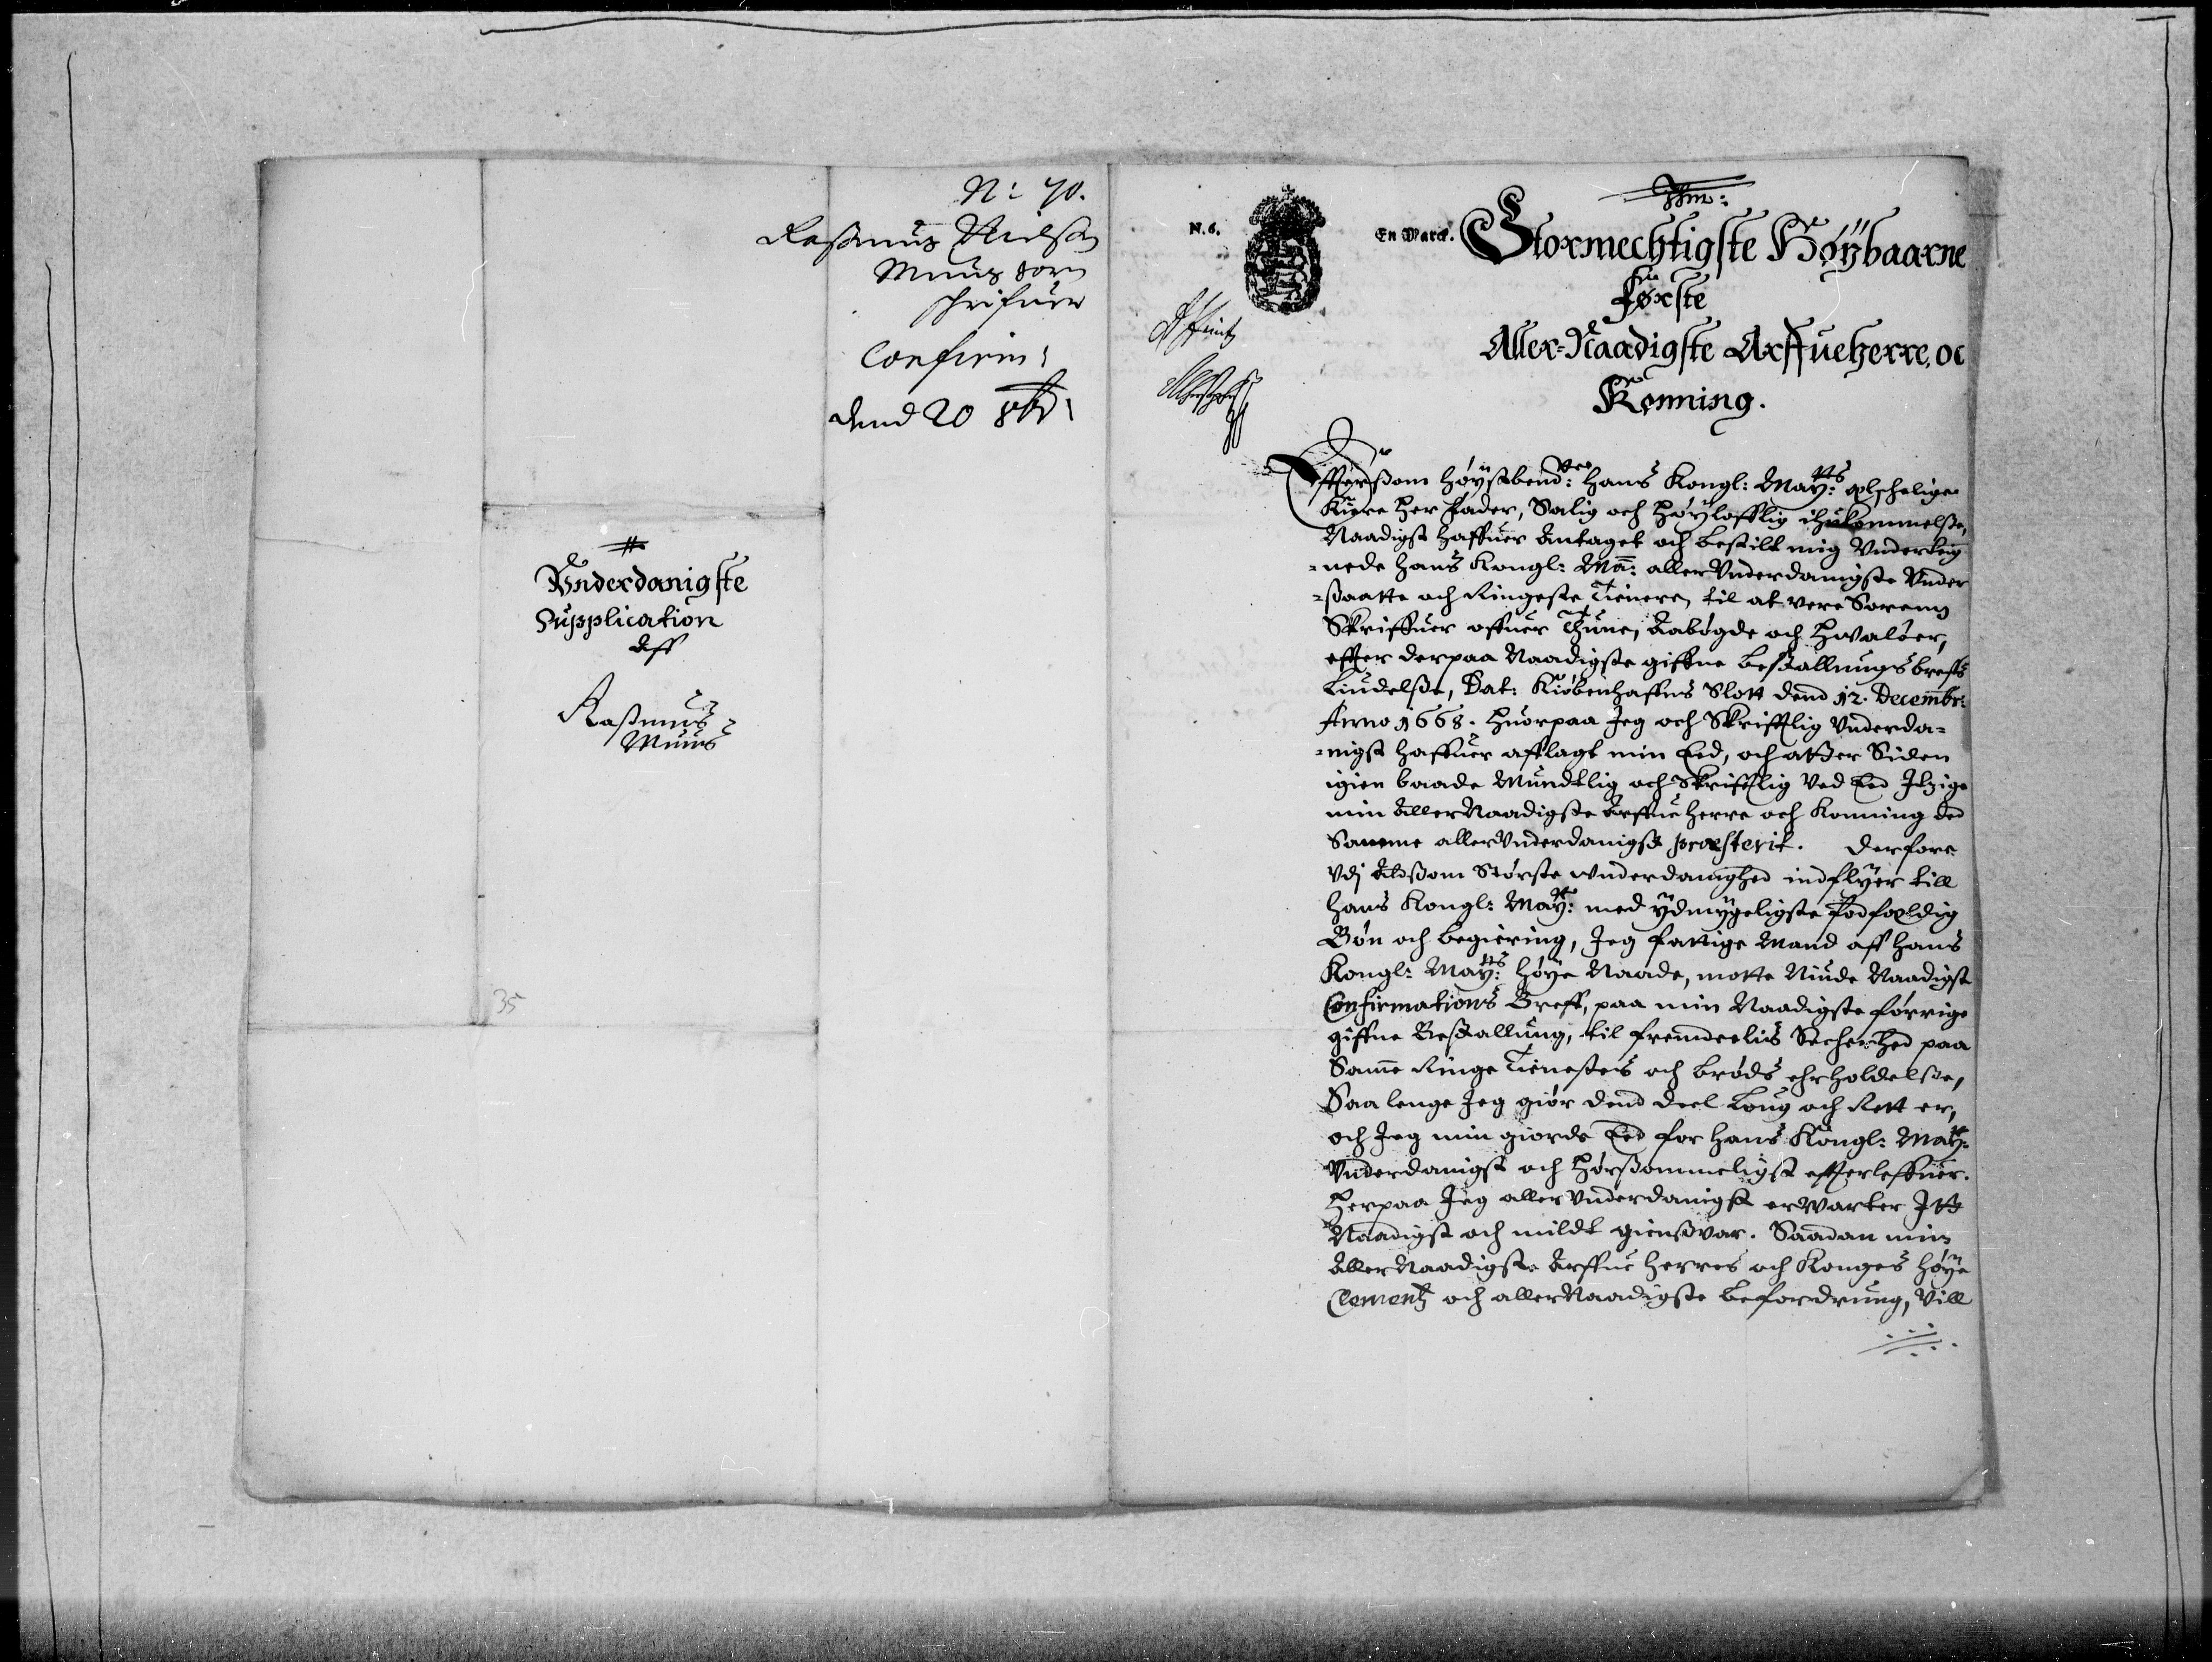 N: 70.
Rasmus Nielsen
Muus sorn
schrifuer
Confirm:
dend 20 8br:
Vnderdanigste
Supplication
Aff
Rasmus
Muus
35
N. 6.
En Marck.
Stormechtigste Høÿbaarne
Første
Aller-Naadigste Arffueherre, oc
Konning.
Effterßom høÿstbemd:te hans Kongl: Maÿ:tts elschelige
Kiere Her Fader, Salig och Høÿlofflig ihukommelße,
Naadigst haffuer Antaget och bestilt mig Underteig¬
¬nede hans Kongl: Ma: aller Underdanigste Under
¬ßaatte och Ringeste Tienere, til at vere Soren
Skriffuer offuer Thune, Aabøgde och Hvaløer,
effter derpaa Naadigste giffne bestallnngs breffs
Liudelße, Dat: Kiøbenhaffns Slott dend 12. Decembr:
Anno 1668. Huorpaa Jeg och Skrifftlig Underda¬
¬nigst haffuer afflagt min Eed, och atter Siden
igien baade Mundtlig och Skrifftlig Ved Eed Itzige
min AllerNaadigste Arffue Herre och Konning ded
Samme allerUnderdanigst præsterit. Derfore
Vdj Aldßom Største Underdanighed indflÿer till
hans Kongl: Maÿ:tt med ÿdmÿgeligste fodfaldig
Bøn och begiering, Jeg fattige Mand aff hans
Kongl: Maÿ:tts høÿe Naade, motte Niude Naadigst
Confirmations Breff, paa min Naadigste forrige
giffne Bestallung, til fremdeelis Secherhed paa
Samme Ringe Tienestes och brøds ehrholdelße,
Saa lenge Jeg giør dend deel Loug och Rett er,
och Jeg min giorde Eed for hans Kongl: Maÿ:tt
Underdanigst och Hørßommeligst effterleffuer.
Herpaa Jeg aller Underdanigst erwarter Itt
Naadigst och mildt gienßvar. Saadan min
AllerNaadigste Arffue Herres och Konges høÿe
Clementz och allerNaadigste befordrung, Vill